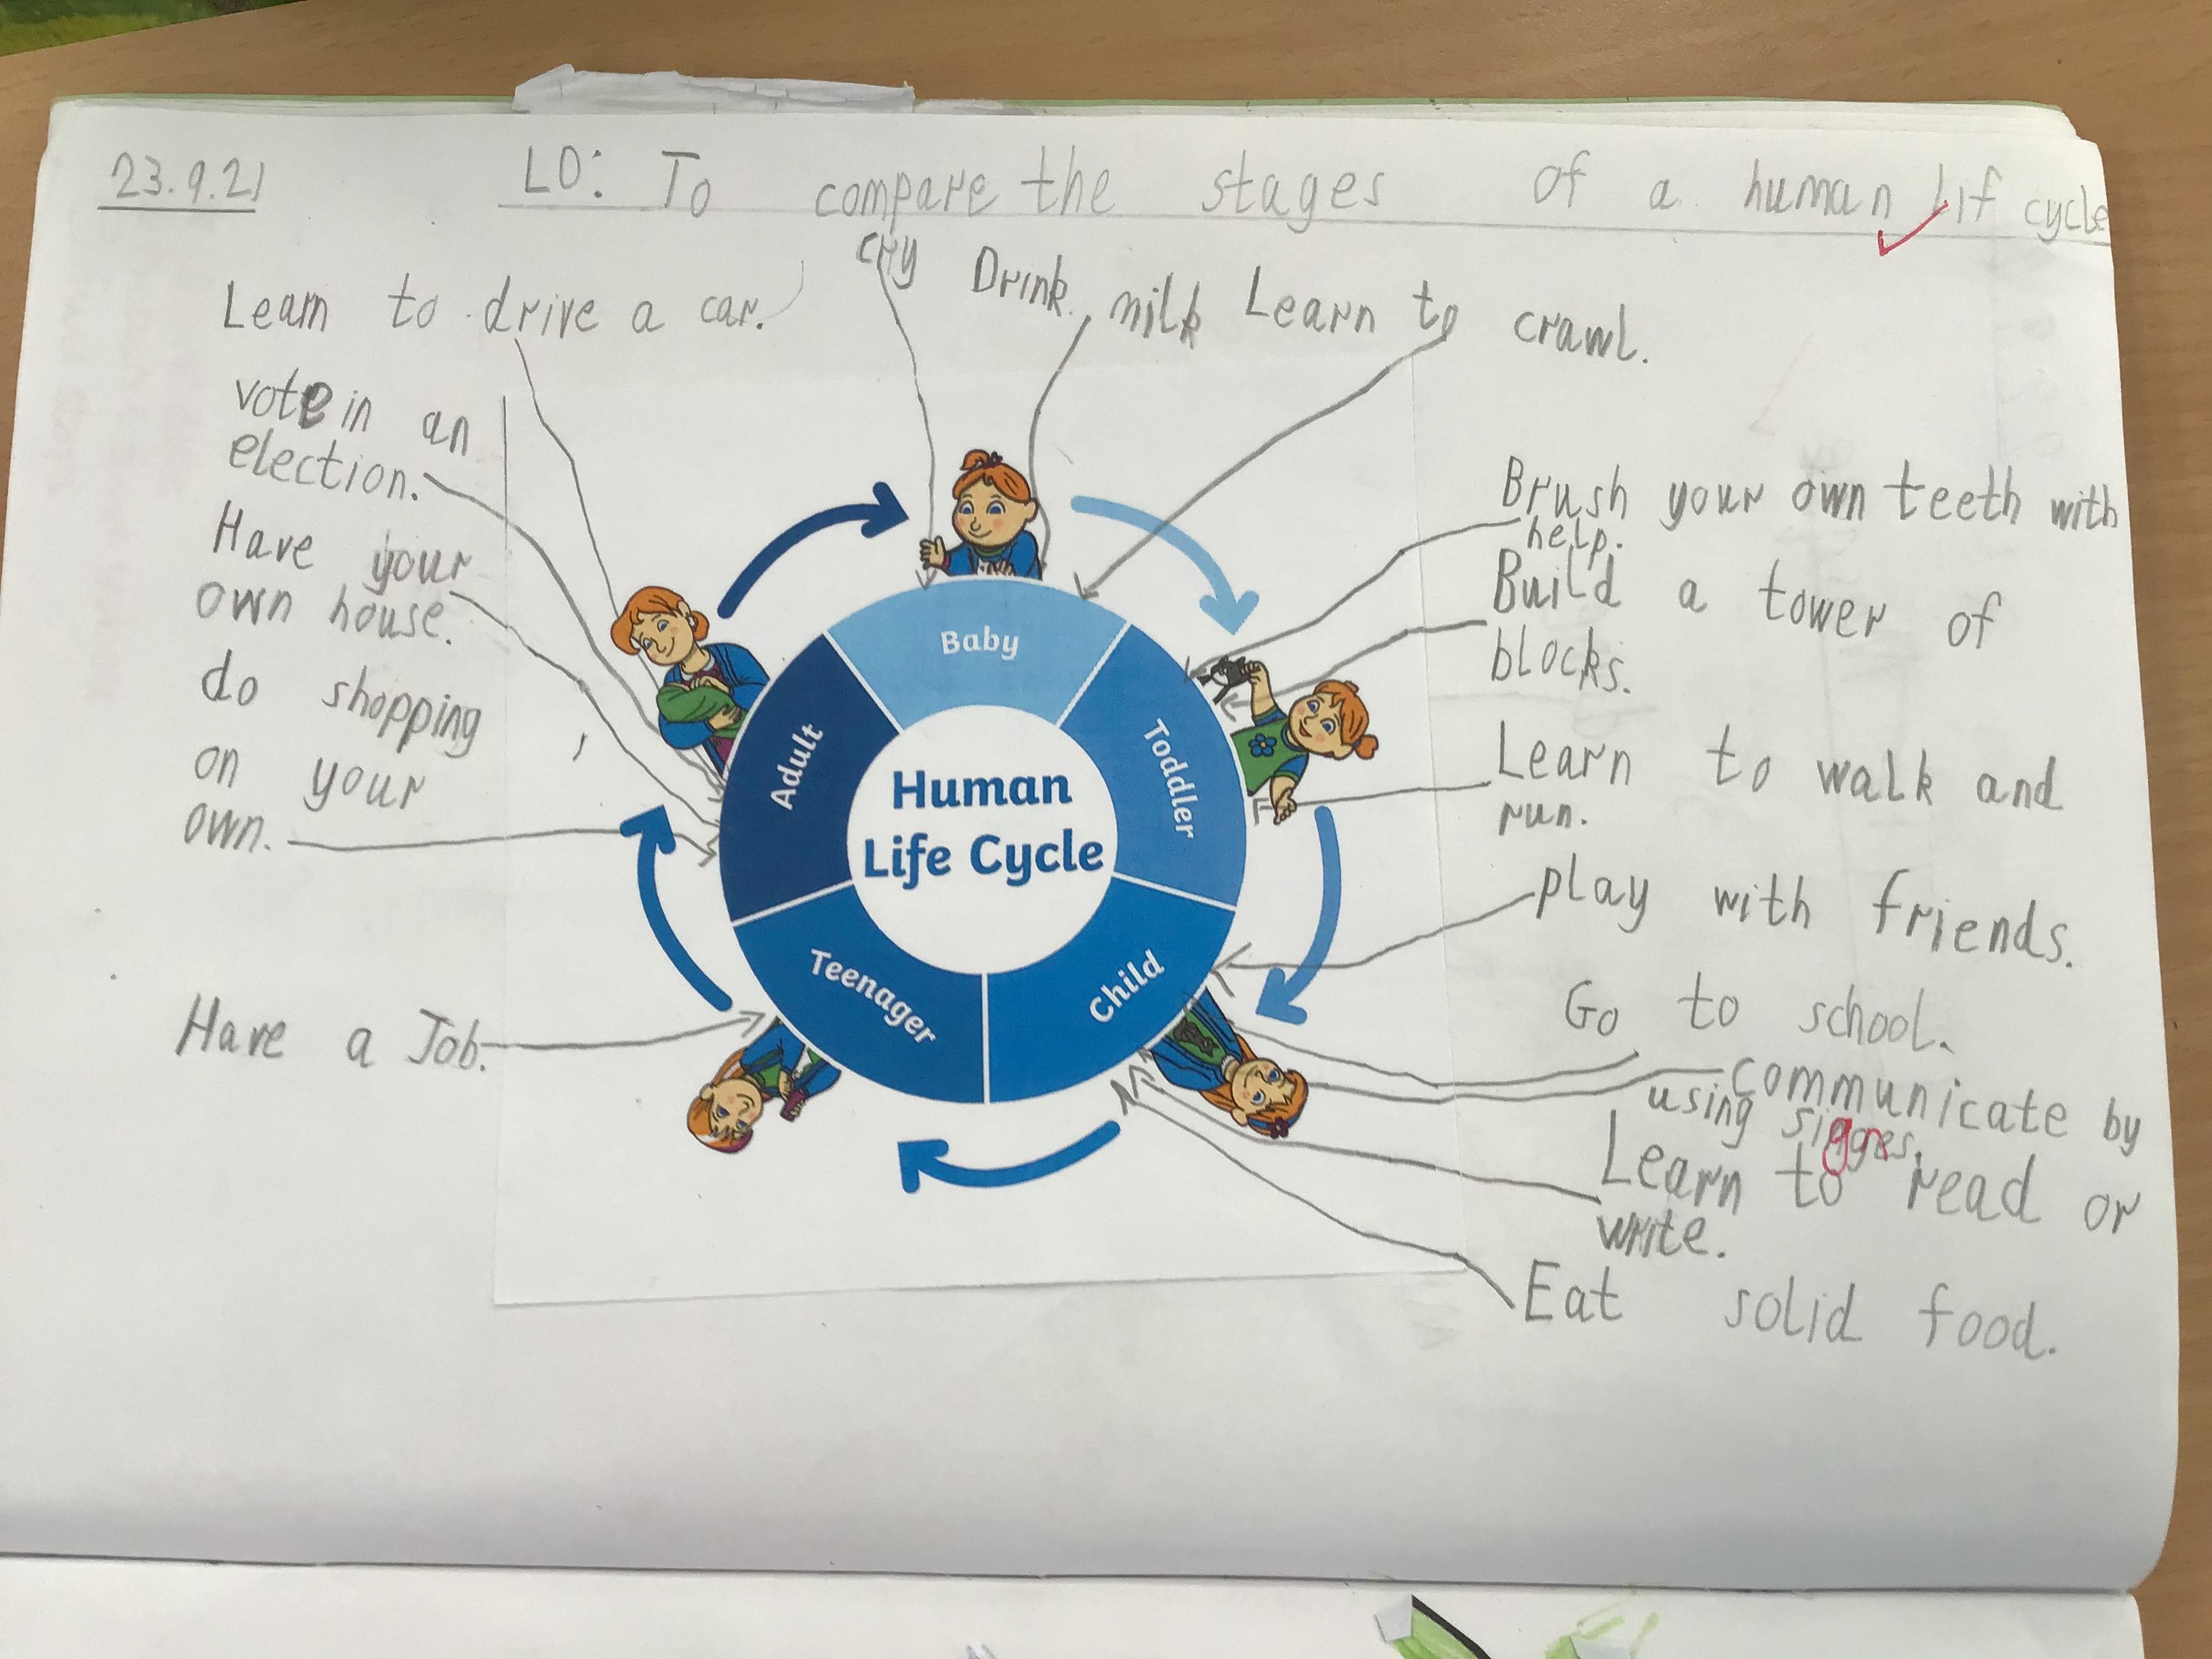 23.9.21
LO: To compare the stages of a human Lif cycle
Learn to drive a car.
cry Drink milk Learn to crawl.
vote in an
election.
Have your
own house.
do shopping
on your
own.
Have a Job.
Brush your own teeth with
help.
Build a tower of
blocks.
Learn to walk and
run.
play with friends.
Go to school.
communicate by
using
Learn to read or
write.
Eat solid food.
Baby
Toddler
Child
Teenager
Adult
Human
Life Cycle